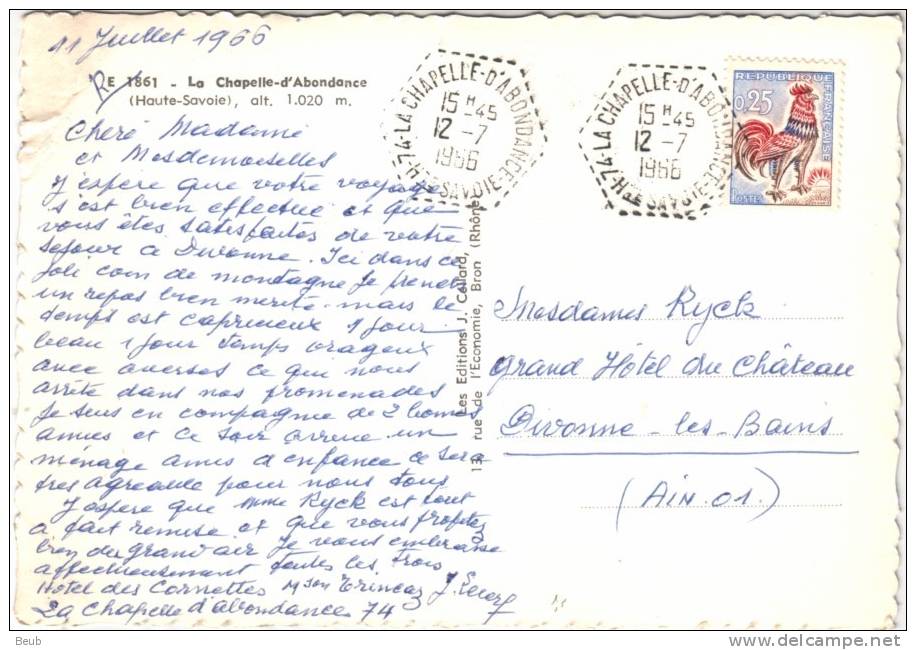 11 Juillet 1966
RE 1861 - La Chapelle-d'Abondance
(Haute-Savoie), alt. 1.020 m.
Chere Madame
et Mesdemoiselles
J'espère que votre voyage
s'est bien effectué et que
vous êtes satisfaites de votre
sejour a Divonne. Ici dans ce
joli coin de montagne je prends
un repos bien merité mais le
temps est capricieux 1 jour
beau 1 jour temps orageux
avec averses ce que nous
arrête dans nos promenades
Je suis en compagnie de 2 bonnes
amies et ce soir arrive un
ménage amis d'enfance ce sera
tres agreable pour nous tous
J'espere que Mme Ryck est tout
a fait remise et que vous profitez
bien du grand air Je vous embrasse
affectueusement toutes les trois
Hotel des Cornettes Mson Trincaz
La Chapelle d'abondance 74
Les Editions J. Cellard,
13, rue de l'Economie, Bron (Rhône)
H74-LA CHAPELLE-D'ABONDANCE
15 H-45
12 -7
1966
HTE SAVOIE
H74-LA CHAPELLE-D'ABONDANCE
15 H-45
12 -7
1966
HTE SAVOIE
REPUBLIQUE
FRANÇAISE
0,25
POSTES
Mesdames Ryck
Grand Hôtel du Château
Divonne-les-Bains
(Ain.01.)
Beub
www.delcampe.net